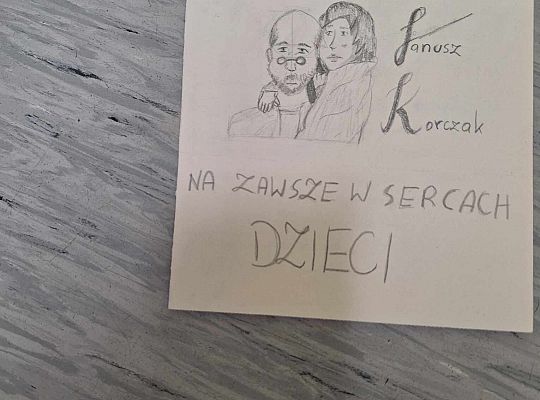 Janusz
Korczak
NA ZAWSZE W SERCACH
DZIECI